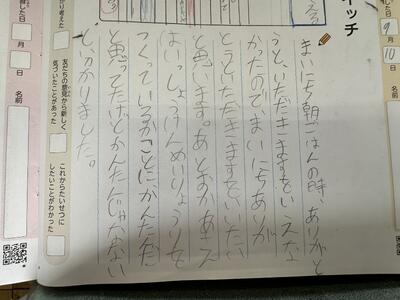 した日
9
月
10
名前
イッチ
まいにち朝ごはんの時、ありがと
うと、いただきますをいえな
かったのでまいにちありが
とういただきますをいいたい
と思います。あとおかあさん
はいっしょうけんめいりょうりを
つくっているかことに、かんたんだ
と思ってたけどかんたんじゃない
と、わかりました。
かり考えた
友だちの意見から新しく
気づいたことがあった
これからたいせつに
したいことがわかった
した日
月
日
名前